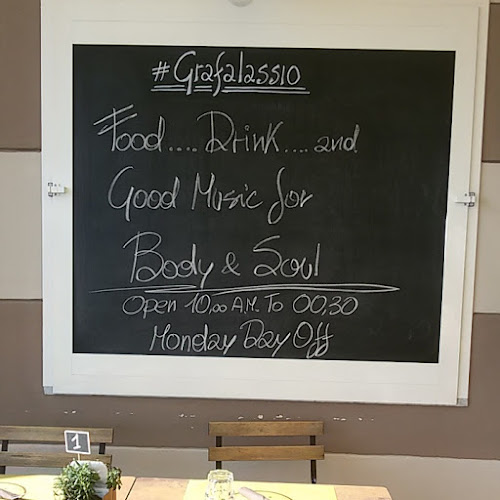 #Grafalassio
Food.....Drink....and
Good Music for
Body & Soul
Open 10,00 A.M. To 00,30
Monday Day Off
1